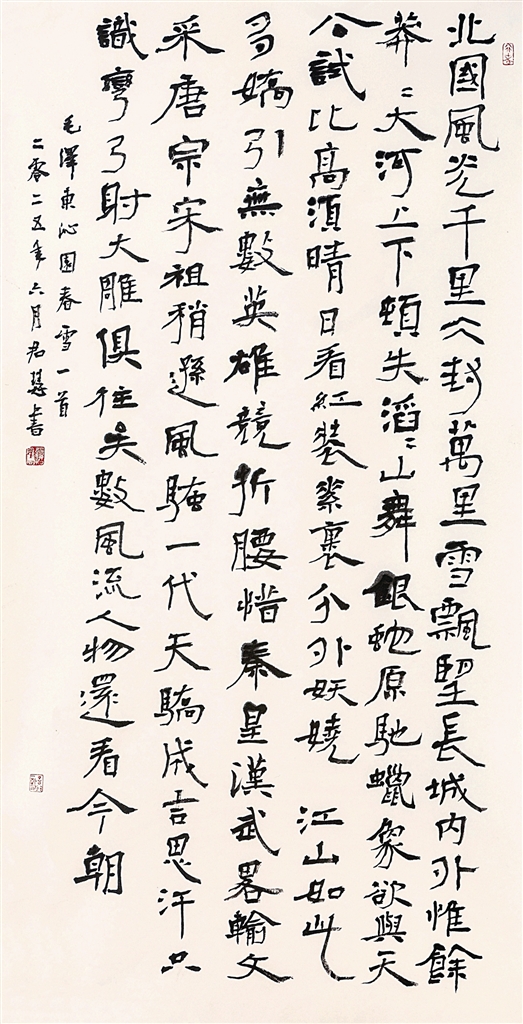 北國風光千里冰封萬里雪飄望長城内外惟餘
莽〻大河上下頓失滔〻山舞銀蛇原馳蠟象欲與天
公試比高須晴日看紅裝素裹分外妖嬈 江山如此
多嬌引無數英雄競折腰惜秦皇漢武畧輸文
采唐宗宋祖稍遜風騷一代天驕成吉思汗只
識彎弓射大雕俱往矣數風流人物還看今朝
毛澤東沁園春雪一首
二零二五年六月君書